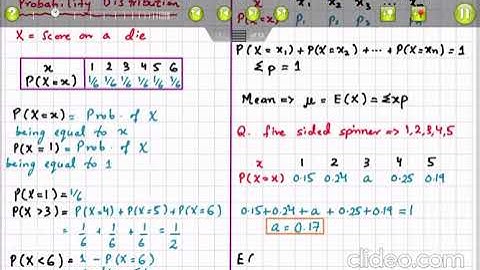 Probability Distribution
X = Score on a die
x 1 2 3 4 5 6
P(X=x) 1/6 1/6 1/6 1/6 1/6 1/6
P(X=x) = Prob. of X
being equal to x
P(X=1) = Prob. of X
being equal to 1
P(X=1)=1/6
P(X>3) = P(X=4)+P(X=5)+P(X=6)
= 1/6 + 1/6 + 1/6 = 1/2
P(X<6) = 1 - P(X=6)
x x₁ x₂ x₃ ... xn
P(X=x) P₁ P₂ P₃ Pn
P(X=x₁) + P(X=x₂) + ... + P(X=xn) = 1
Σp = 1
Mean => μ = E(X) = Σxp
Q. five sided spinner => 1,2,3,4,5
x 1 2 3 4 5
P(X=x) 0.15 0.24 a 0.25 0.19
0.15+0.24+a+0.25+0.19=1
a=0.17
E(
clideo.com